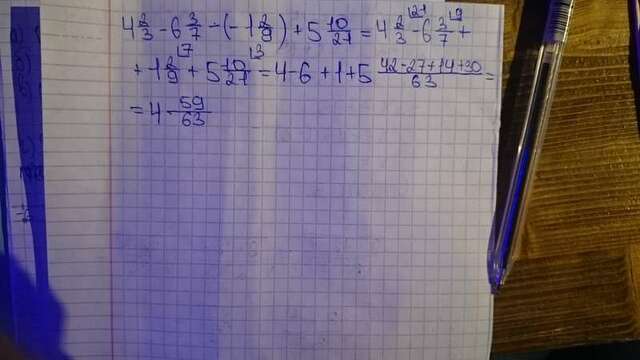 4 2/3 - 6 3/7 - (- 1 2/9) + 5 10/21 = 4 2/3 - 6 3/7 +
+ 1 2/9 + 5 10/21 = 4 - 6 + 1 + 5 (42 - 27 + 14 + 30)/63 =
= 4 59/63